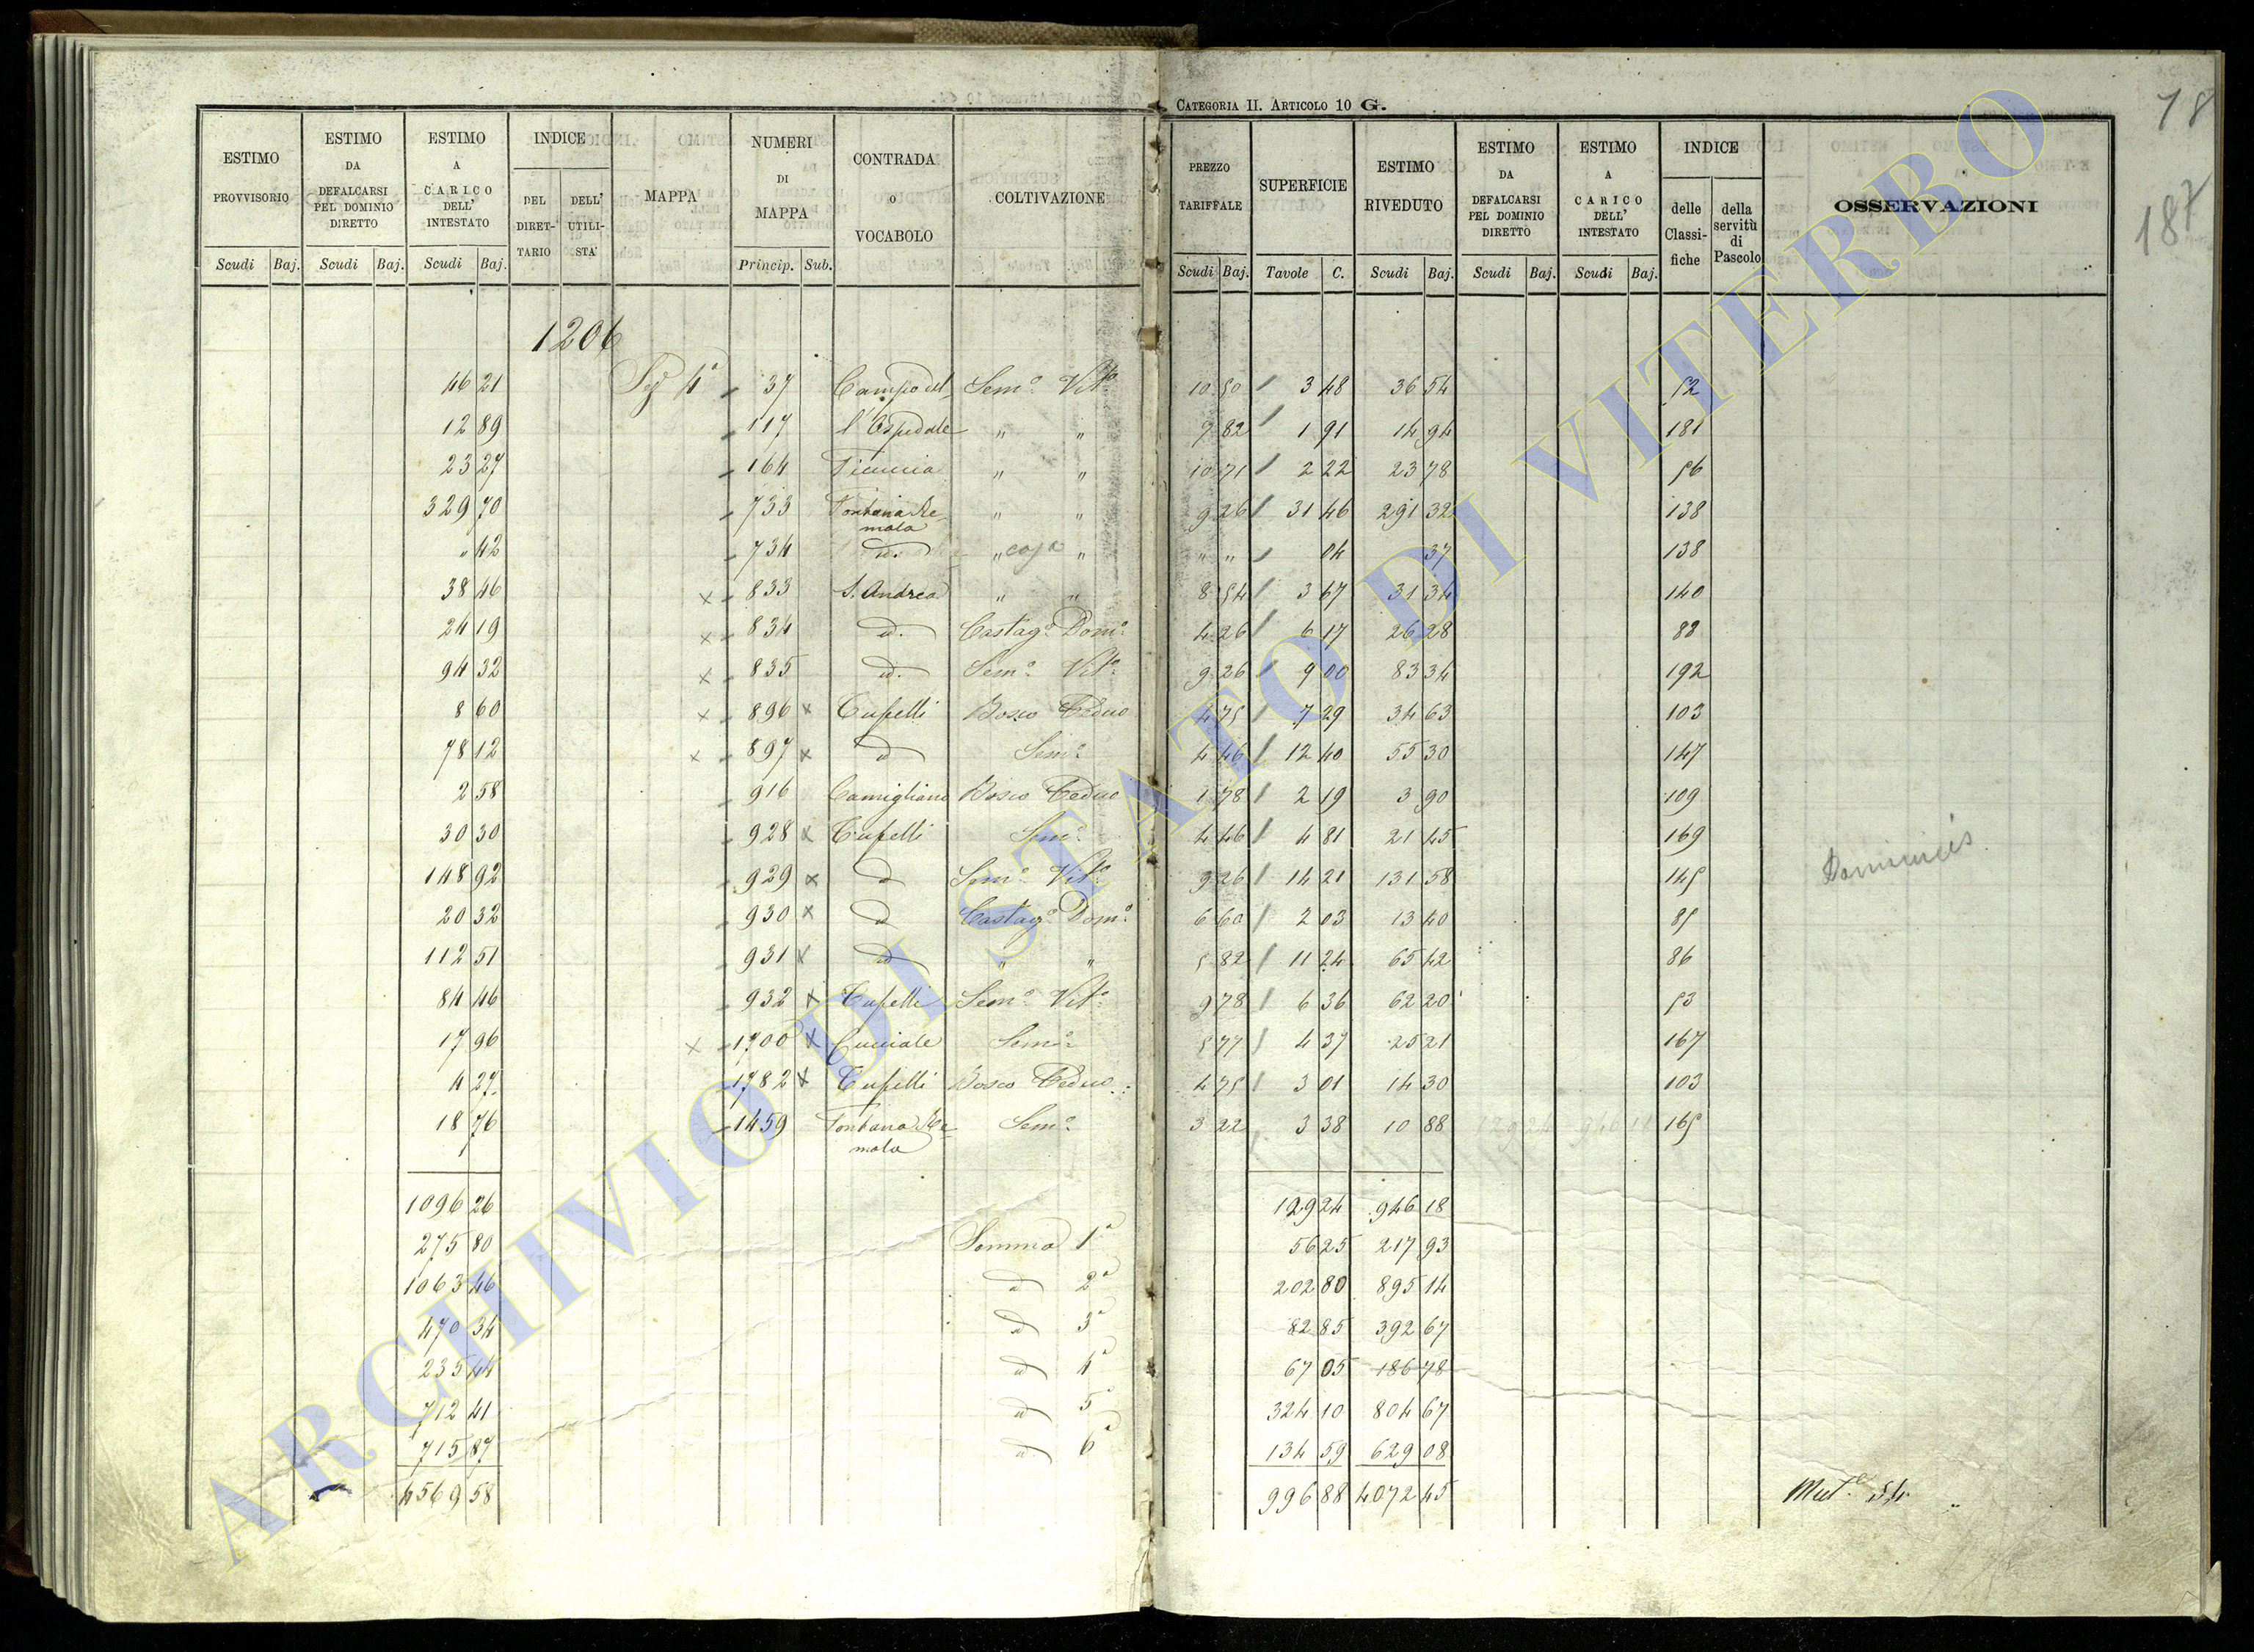 CATEGORIA II. ARTICOLO 10 G.
78
187
ESTIMO PROVVISORIO | ESTIMO DA DEFALCARSI PEL DOMINIO DIRETTO | ESTIMO A CARICO DELL' INTESTATO | INDICE DEL DIRET-TARIO | DELL' UTILI-STA' | MAPPA | NUMERI DI MAPPA | CONTRADA O VOCABOLO | COLTIVAZIONE | PREZZO TARIFFALE | SUPERFICIE | ESTIMO RIVEDUTO | ESTIMO DA DEFALCARSI PEL DOMINIO DIRETTO | ESTIMO A CARICO DELL' INTESTATO | INDICE delle Classi-fiche | della servitù di Pascolo | OSSERVAZIONI
Scudi | Baj. | Scudi | Baj. | Scudi | Baj. | Princip. | Sub. | Scudi | Baj. | Tavole | C. | Scudi | Baj. | Scudi | Baj. | Scudi | Baj.
1206
46 21 | Sez 4ª | 37 | Campo del- | Semº Vitº | 10 50 | 3 48 | 36 54 | 52
12 89 | 117 | l'Ospedale | " " | 7 82 | 1 91 | 14 94 | 181
23 27 | 164 | Ficuccia | " " | 10 71 | 2 22 | 23 78 | 56
329 70 | 733 | Fontana Re- | " " | 9 26 | 31 46 | 291 32 | 138
mola
" 42 | 734 | id. | " casa " | " " | 04 | 37 | 138
38 46 | x 833 | S. Andrea | " " | 8 54 | 3 67 | 31 34 | 140
24 19 | x 834 | id. | Castagº Domº | 4 26 | 6 17 | 26 28 | 88
94 32 | x 835 | id. | Semº Vitº | 9 26 | 9 00 | 83 34 | 192
8 60 | x 896 x | Cupelli | Bosco Ceduo | 4 75 | 7 29 | 34 63 | 103
78 12 | x 897 x | id | Semº | 4 46 | 12 40 | 55 30 | 147
2 58 | 916 | Camigliano | Bosco Ceduo | 1 78 | 2 19 | 3 90 | 109
30 30 | 928 x | Cupelli | Semº | 4 46 | 4 81 | 21 45 | 169
148 92 | 929 x | id | Semº Vitº | 9 26 | 14 21 | 131 58 | 145 | Dominicis
20 32 | 930 x | id | Castagº Domº | 6 60 | 2 03 | 13 40 | 85
112 51 | 931 x | id | " " | 5 82 | 11 24 | 65 42 | 86
84 46 | 932 x | Cupelli | Semº Vitº | 9 78 | 6 36 | 62 20 | 53
17 96 | x 1700 x | Cucciale | Semº | 5 77 | 4 37 | 25 21 | 167
4 27 | 1782 x | Cupelli | Bosco Ceduo | 4 75 | 3 01 | 14 30 | 103
18 76 | 1459 | Fontana Re- | Semº | 3 22 | 3 38 | 10 88 | 129 24 | 946 18 | 165
mola
1096 26 | 129 24 | 946 18
275 80 | Somma 1ª | 56 25 | 217 93
1063 46 | id 2ª | 202 80 | 895 14
470 34 | id 3ª | 82 85 | 392 67
235 44 | id 4ª | 67 05 | 186 78
712 41 | id 5ª | 324 10 | 804 67
715 87 | id 6ª | 134 59 | 629 08
4569 58 | 996 88 | 4072 45 | Mutª 54
ARCHIVIO DI STATO DI VITERBO